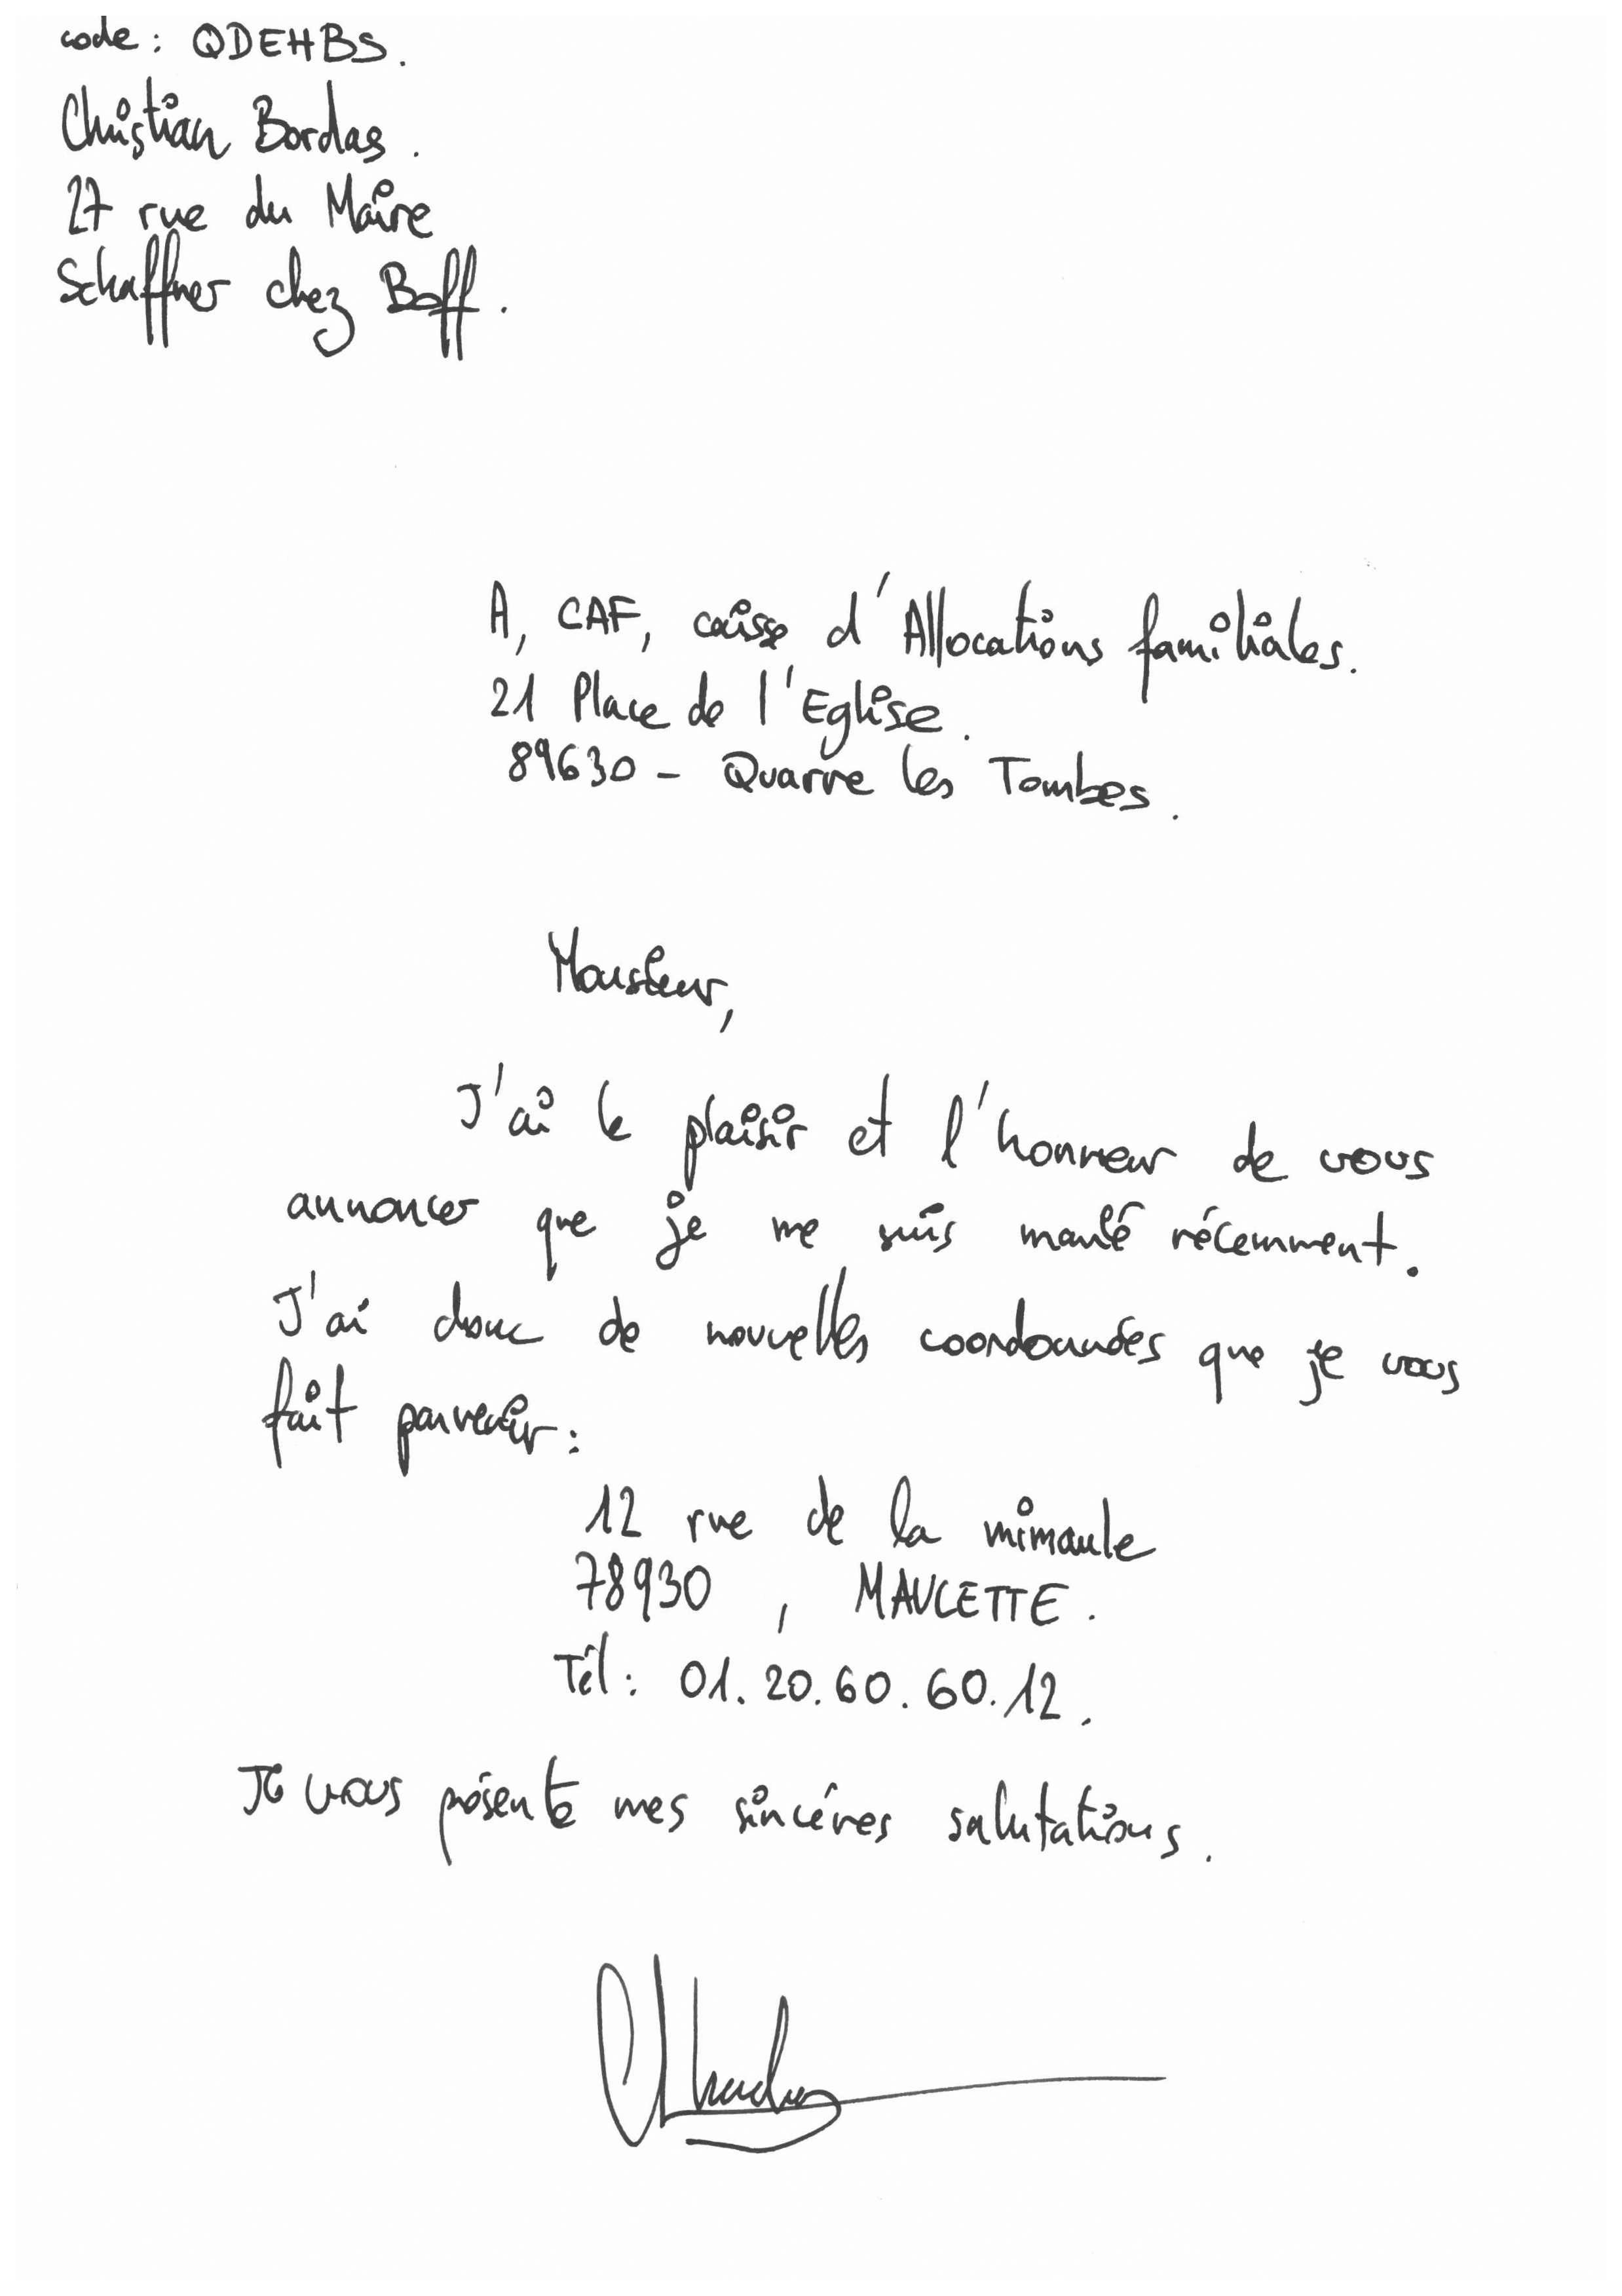 code : QDEHBS.
Christian Bordas.
27 rue du Maire
Schaffner chez Boff.
A, CAF, caisse d'Allocations familiales.
21 Place de l'Eglise.
89630 - Quarre les Tombes.
Monsieur,
J'ai le plaisir et l'honneur de vous
annoncer que je me suis marié récemment.
J'ai donc de nouvelles coordonnées que je vous
fait parvenir :
12 rue de la mimaule
78930 , MAULETTE.
Tél : 01.20.60.60.12.
Je vous présente mes sincéres salutations.